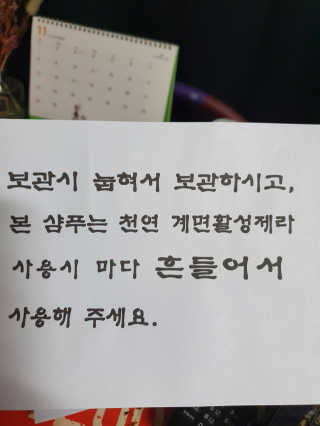 11
보관시 눕혀서 보관하시고,
본 샴푸는 천연 계면활성제라
사용시 마다 흔들어서
사용해 주세요.